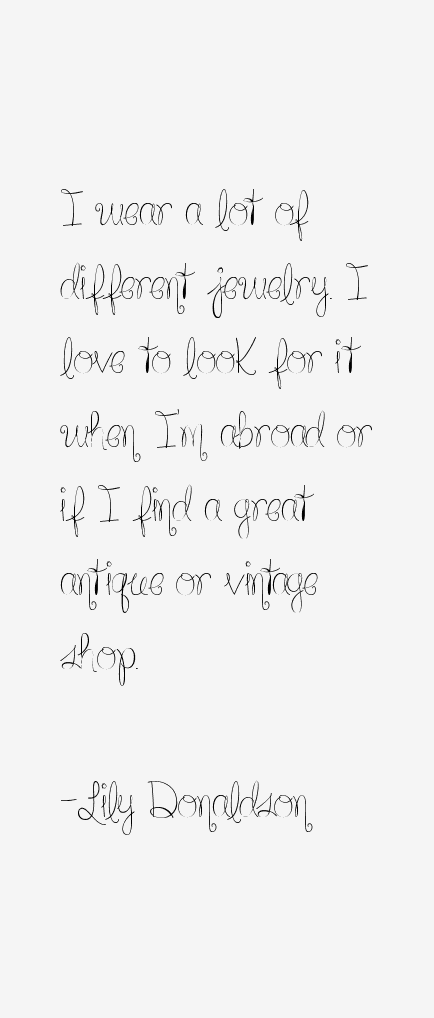 I wear a lot of
different jewelry. I
love to look for it
when I'm abroad or
if I find a great
antique or vintage
shop.
-Lily Donaldson